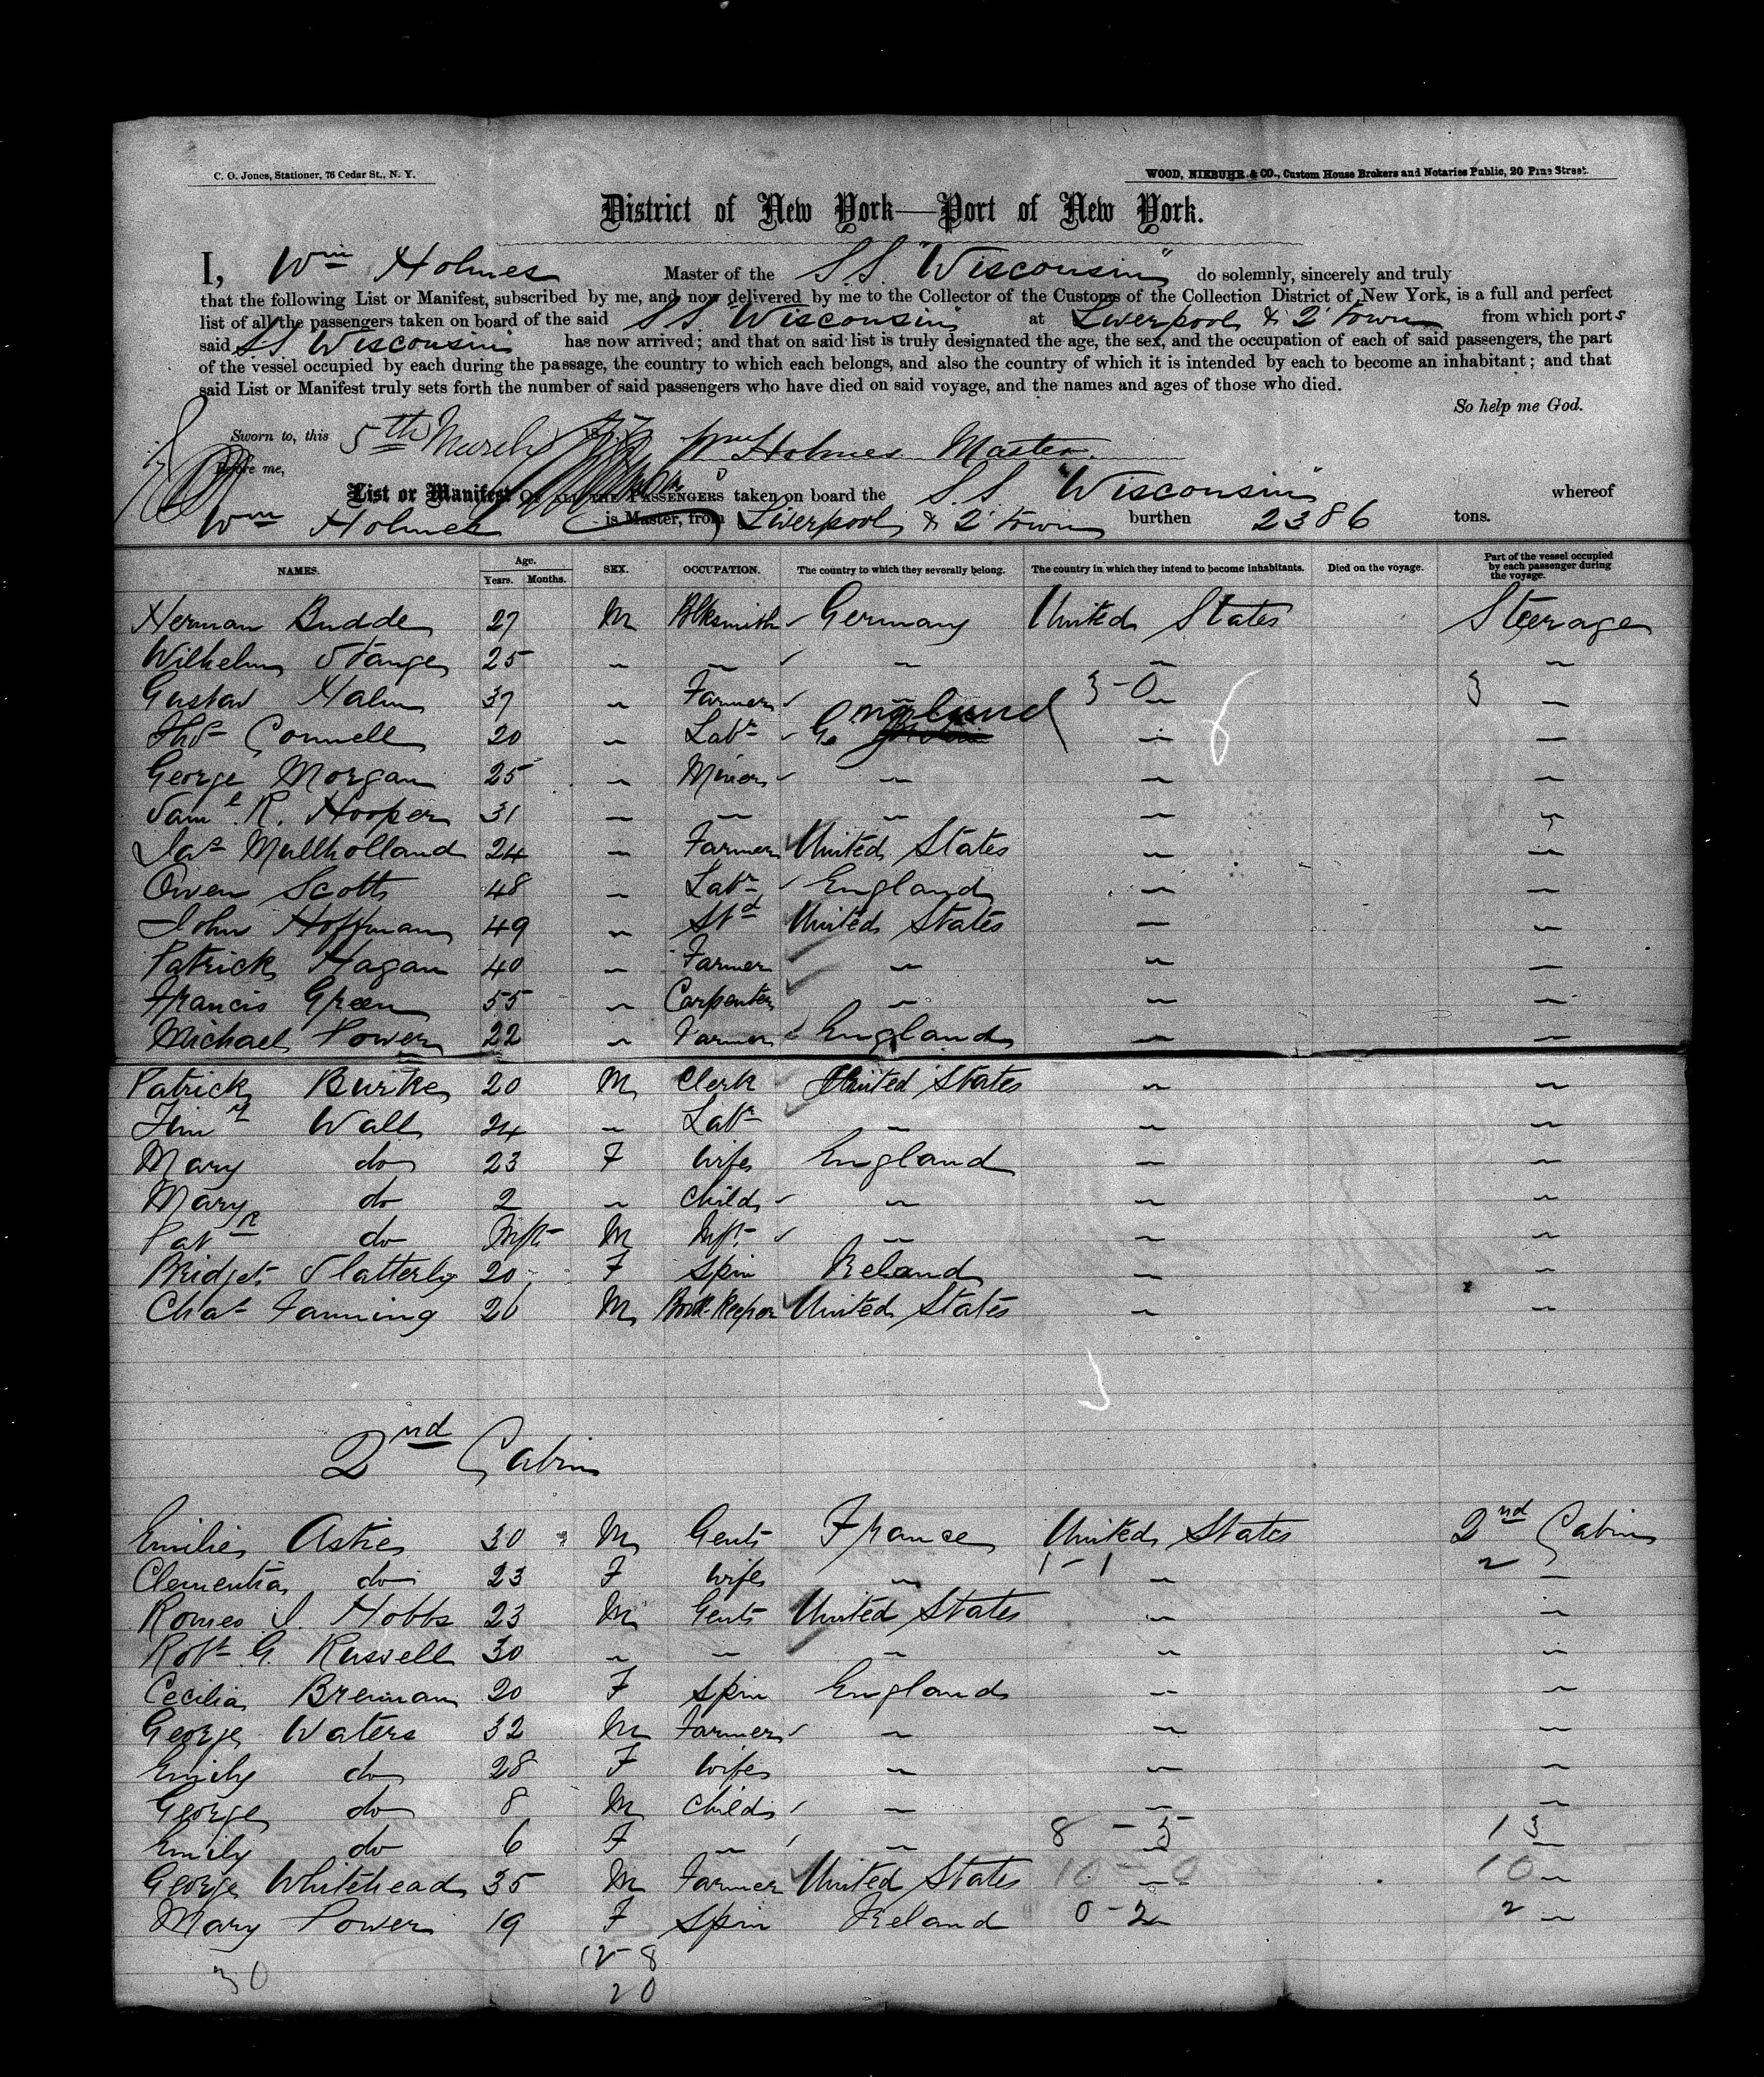 C. O. Jones, Stationer, 76 Cedar St., N. Y.
WOOD, NIEBUHR & CO., Custom House Brokers and Notaries Public, 20 Pine Street.
District of New York—Port of New York.
I, Wm Holmes Master of the S.S. "Wisconsin" do solemnly, sincerely and truly
that the following List or Manifest, subscribed by me, and now delivered by me to the Collector of the Customs of the Collection District of New York, is a full and perfect
list of all the passengers taken on board of the said SS "Wisconsin" at Liverpool & Q'town from which ports
said SS Wisconsin has now arrived; and that on said list is truly designated the age, the sex, and the occupation of each of said passengers, the part
of the vessel occupied by each during the passage, the country to which each belongs, and also the country of which it is intended by each to become an inhabitant; and that
said List or Manifest truly sets forth the number of said passengers who have died on said voyage, and the names and ages of those who died.
So help me God.
Sworn to, this 5th March 187 Wm Holmes Master.
Before me,
List or Manifest OF ALL THE PASSENGERS taken on board the S.S "Wisconsin" whereof
Wm Holmes is Master, from Liverpool & Q'town burthen 2386 tons.
NAMES. Age. Years. Months. SEX. OCCUPATION. The country to which they severally belong. The country in which they intend to become inhabitants. Died on the voyage. Part of the vessel occupied by each passenger during the voyage.
Herman Budde 27 M Blksmith Germany United States Steerage
Wilhelm Stange 25 " " " " "
Gustav Halm 37 " Farmer " 3-0 " 3 "
Thos Connell 20 " Labr England " "
George Morgan 25 " Miner " " "
Saml R. Hooper 31 " " " " "
Jas Mullholland 24 " Farmer United States " "
Owen Scott 48 " Labr England " "
John Hoffman 49 " St'd United States " "
Patrick Hagan 40 " Farmer " " "
Francis Green 55 " Carpenter " " "
Michael Power 22 " Farmer England " "
Patrick Burke 20 M Clerk United States " "
Timy Wall 24 " Labr " " "
Mary do 23 F Wife England " "
Mary do 2 " Child " " "
Patk do Inft M Inft " " "
Bridget Slatterly 20 F Spin Ireland " "
Chas Fanning 26 M Book-Keeper United States " "
2nd Cabin
Emilie Astie 30 M Gent France United States 2nd Cabin
Clementia do 23 F Wife " 1-1 " 2 "
Romeo I. Hobbs 23 M Gent United States " "
Robt G. Russell 30 " " " " "
Cecilia Brennan 20 F Spin England " "
George Waters 32 M Farmer " " "
Emily do 28 F Wife " " "
George do 8 M Child " " "
Emily do 6 F " " 8-5 13
George Whitehead 35 M Farmer United States 10-0 10 "
Mary Power 19 F Spin Ireland 0-2 2 "
30 12-8
20